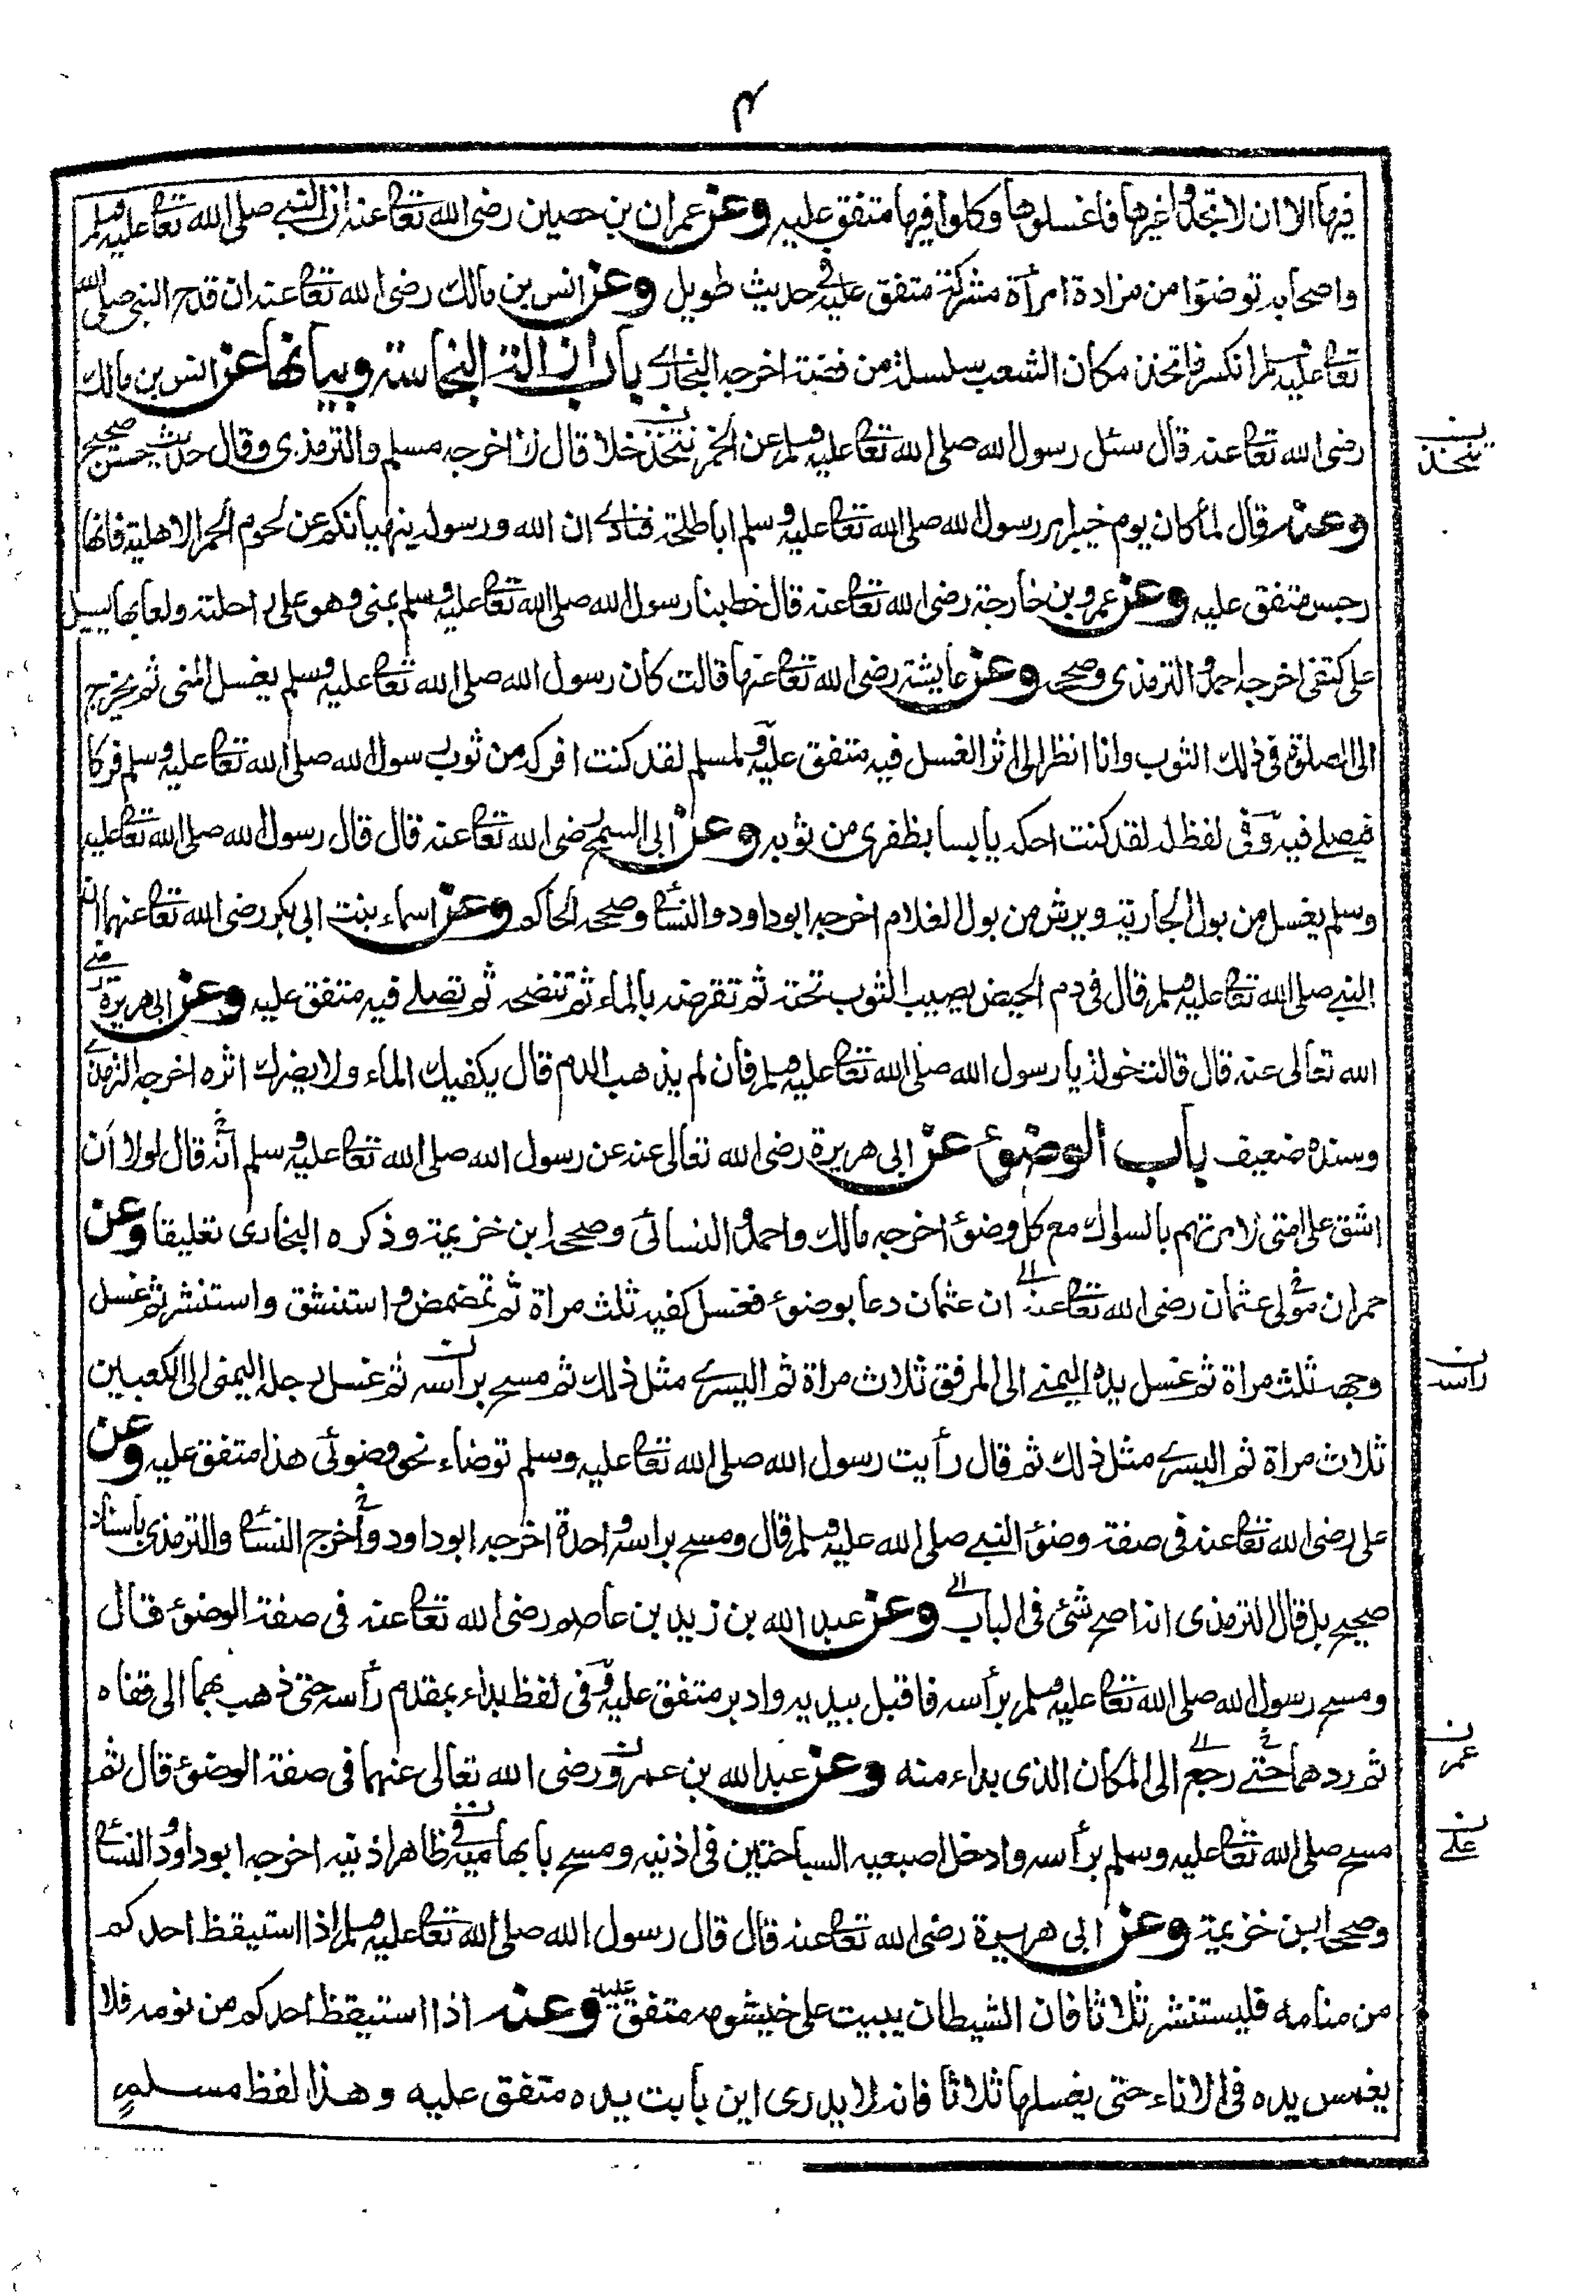 ۴
فيها الا ان لا تجدوا غيرها فاغسلوها وكلوا فيها متفق عليه وعن عمران بن حصين رضى الله تعا عنه ان النبي صلى الله تعا عليه وسلم
واصحابه توضؤا من مزادة امرأة مشركة متفق عليه في حديث طويل وعن انس بن مالك رضى الله تعا عنه ان قدح النبي صلى الله
تعا عليه وسلم انكسر فاتخذ مكان الشعب سلسلة من فضة اخرجه البخاري باب ازالة النجاسة وبيانها عن انس بن مالك
رضى الله تعا عنه قال سئل رسول الله صلى الله تعا عليه وسلم عن الخمر تتخذ خلا قال لا اخرجه مسلم والترمذى وقال حديث حسن صحيح
يتخذ ن
وعنه قال لما كان يوم خيبر امر رسول الله صلى الله تعا عليه وسلم ابا طلحة فنادى ان الله ورسوله ينهيانكم عن لحوم الحمر الاهلية فانها
رجس متفق عليه وعن عمرو بن خارجة رضى الله تعا عنه قال خطبنا رسول الله صلى الله تعا عليه وسلم بمنى وهو على راحلته ولعابها يسيل
على كتفى اخرجه احمد والترمذى وصححه وعن عايشة رضى الله تعا عنها قالت كان رسول الله صلى الله تعا عليه وسلم يغسل المنى ثم يخرج
الى الصلوة فى ذلك الثوب وانا انظر الى اثر الغسل فيه متفق عليه ولمسلم لقد كنت افركه من ثوب رسول الله صلى الله تعا عليه وسلم فركا
فيصلے فيه وفى لفظ له لقد كنت احكه يابسا بظفرى من ثوبه وعن ابى السمح رضى الله تعا عنه قال قال رسول الله صلى الله تعا عليه
وسلم يغسل من بول الجارية ويرش من بول الغلام اخرجه ابوداود والنسائ وصححه الحاكم وعن اسماء بنت ابى بكر رضى الله تعا عنهما ان
النبے صلى الله تعا عليه وسلم قال فى دم الحيض يصيب الثوب تحته ثم تقرضه بالماء ثم تنضحه ثم تصلے فيه متفق عليه وعن ابى هريرة رضے
الله تعالى عنه قال قالت خولة يا رسول الله صلى الله تعا عليه وسلم فان لم يذهب الدم قال يكفيك الماء ولا يضرك اثره اخرجه الترمذے
وسنده ضعيف باب الوضوئ عن ابى هريرة رضى الله تعالى عنه عن رسول الله صلى الله تعا عليه وسلم انه قال لولا ان
اشق على امتى لامرتهم بالسواك مع كل وضوئ اخرجه مالك واحمد والنسائى وصححه ابن خزيمة وذكره البخارى تعليقا وعن
حمران مولى عثمان رضى الله تعا عنه ان عثمان دعا بوضوئ فغسل كفيه ثلث مراة ثم تمضمض واستنشق واستنثر ثم غسل
وجهه ثلث مراة ثم غسل يده اليمنے الى المرفق ثلاث مراة ثم اليسرے مثل ذلك ثم مسح براسه ثم غسل رجله اليمنى الى الكعبين
راسه ن
ثلاث مراة ثم اليسرے مثل ذلك ثم قال رأيت رسول الله صلى الله تعا عليه وسلم توضاء نحو وضوئى هذا متفق عليه وعن
على رضى الله تعا عنه فى صفة وضوئ النبے صلى الله عليه وسلم قال ومسح براسه واحدة اخرجه ابوداود واخرج النسائ والترمذى باسناد
صحيح بل قال الترمذى انه اصح شئ فى الباب وعن عبد الله بن زيد بن عاصم رضى الله تعا عنه فى صفة الوضوئ قال
ومسح رسول الله صلى الله تعا عليه وسلم برأسه فاقبل بيديه وادبر متفق عليه وفى لفظ بداء بمقدم رأسه حتى ذهب بهما الى قفاه
ثم ردهما حتے رجع الى المكان الذى بداء منه وعن عبد الله بن عمرو رضى الله تعالى عنهما فى صفة الوضوئ قال ثم
عمر ن
مسح صلى الله تعا عليه وسلم برأسه وادخل اصبعيه السباحتين فى اذنيه ومسح بابهاميه فى ظاهر اذنيه اخرجه ابوداود والنسائ
علے ن
وصححه ابن خزيمة وعن ابى هريرة رضى الله تعا عنه قال قال رسول الله صلى الله تعا عليه وسلم اذا استيقظ احدكم
من منامه فليستنثر ثلاثا فان الشيطان يبيت على خيشومه متفق عليه وعنه اذا استيقظ احدكم من نومه فلا
يغمس يده فى الاناء حتى يغسلها ثلاثا فانه لا يدرى اين باتت يده متفق عليه وهذا لفظ مسلم